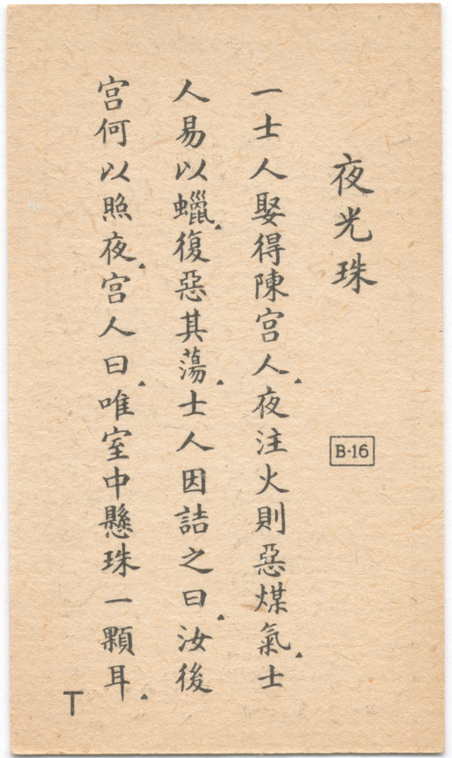 夜光珠
B-16
一士人娶得陳宮人▲夜注火則惡煤氣▲士
人易以蠟▲復惡其蕩▲士人因詰之曰▲汝後
宮何以照夜▲宮人曰▲唯室中懸珠一顆耳▲
T